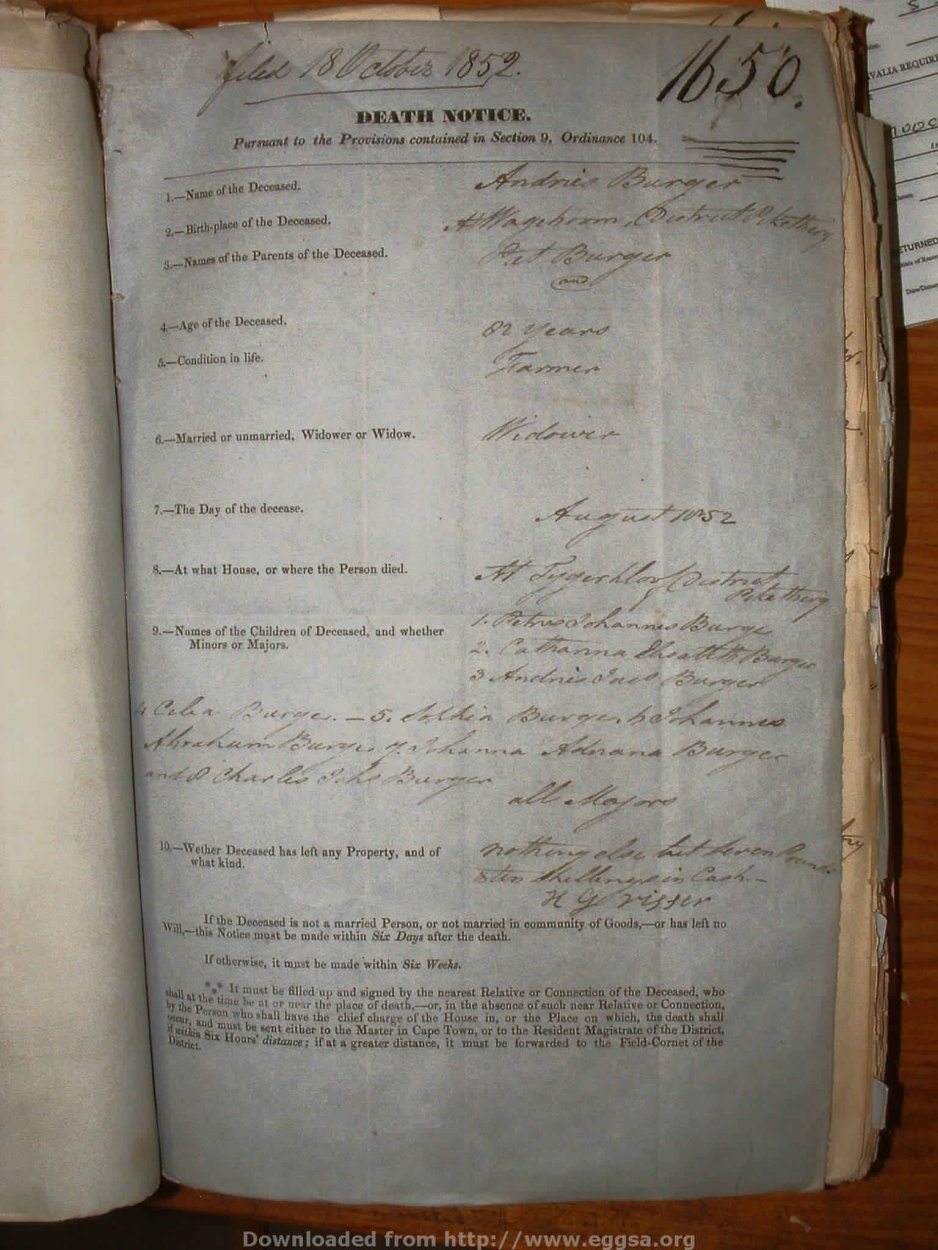 filed 18 October 1852.
1650.
DEATH NOTICE.
Pursuant to the Provisions contained in Section 9, Ordinance 104.
1.—Name of the Deceased. Andries Burger
2.—Birth-place of the Deceased. District
3.—Names of the Parents of the Deceased. Piet Burger
and
4.—Age of the Deceased. 82 Years
5.—Condition in life. Farmer
6.—Married or unmarried, Widower or Widow. Widower
7.—The Day of the decease. August 1852
8.—At what House, or where the Person died. At District
9.—Names of the Children of Deceased, and whether 1. Petrus Johannes Burger
Minors or Majors. 2. Catharina Burger
3 Andries Burger
4 Burger. — 5. Burger, 6 Johannes
Abraham Burger 7. Johanna Adriana Burger
and 8 Charles Burger
all Majors
10.—Wether Deceased has left any Property, and of nothing else but seven Pounds
what kind. & ten Shillings in Cash.—
H G Visser
If the Deceased is not a married Person, or not married in community of Goods,—or has left no
Will,—this Notice must be made within Six Days after the death.
If otherwise, it must be made within Six Weeks.
*** It must be filled up and signed by the nearest Relative or Connection of the Deceased, who
shall at the time be at or near the place of death,—or, in the absence of such near Relative or Connection,
by the Person who shall have the chief charge of the House in, or the Place on which, the death shall
occur, and must be sent either to the Master in Cape Town, or to the Resident Magistrate of the District,
if within Six Hours' distance; if at a greater distance, it must be forwarded to the Field-Cornet of the
District.
Downloaded from http://www.eggsa.org